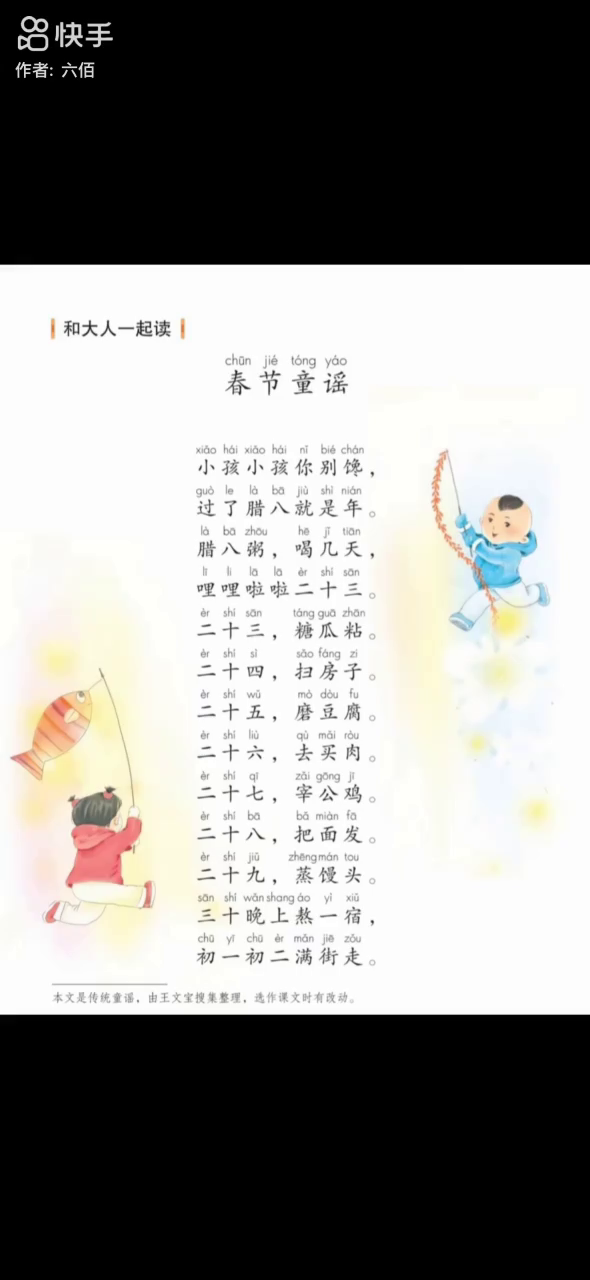 快手
作者: 六佰
和大人一起读
chūn jié tóng yáo
春节童谣
xiǎo hái xiǎo hái nǐ bié chán
小孩小孩你别馋，
guò le là bā jiù shì nián
过了腊八就是年。
là bā zhōu hē jǐ tiān
腊八粥，喝几天，
lī li lā lā èr shí sān
哩哩啦啦二十三。
èr shí sān táng guā zhān
二十三，糖瓜粘。
èr shí sì sǎo fáng zi
二十四，扫房子。
èr shí wǔ mò dòu fu
二十五，磨豆腐。
èr shí liù qù mǎi ròu
二十六，去买肉。
èr shí qī zǎi gōng jī
二十七，宰公鸡。
èr shí bā bǎ miàn fā
二十八，把面发。
èr shí jiǔ zhēng mán tou
二十九，蒸馒头。
sān shí wǎn shang áo yì xiǔ
三十晚上熬一宿，
chū yī chū èr mǎn jiē zǒu
初一初二满街走。
本文是传统童谣，由王文宝搜集整理，选作课文时有改动。